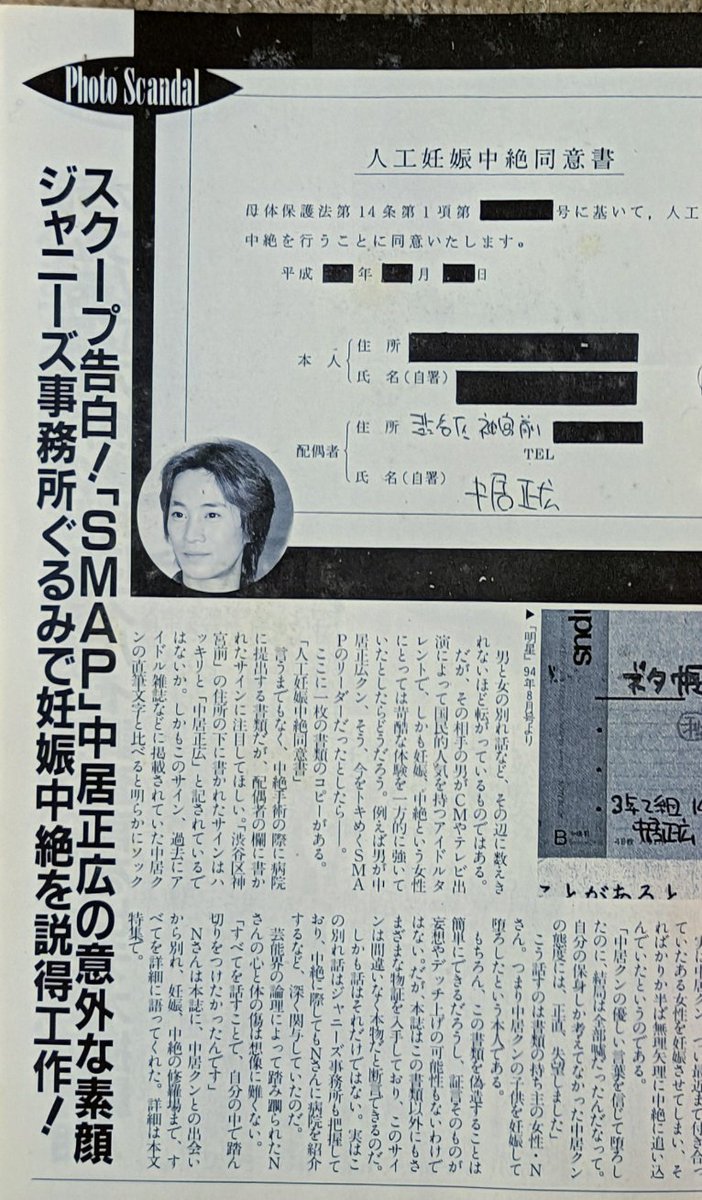 Photo Scandal
人工妊娠中絶同意書
母体保護法第14条第1項第
号に基いて，人工
中絶を行うことに同意いたします。
平成
年
月
日
本人
住所
氏名（自署）
配偶者
住所
渋谷区 神宮前
TEL
氏名（自署）
中居正広
スクープ告白！「SMAP」中居正広の意外な素顔
ジャニーズ事務所ぐるみで妊娠中絶を説得工作！
▶「明星」94年8月号より
ネタ帳
3年2組
中居正広
B
男と女の別れ話など、その辺に数えき
れないほど転がっているものではある。
だが、その相手の男がCMやテレビ出
演によって国民的人気を持つアイドルタ
レントで、しかも妊娠、中絶という女性
にとっては苛酷な体験を一方的に強いて
いたとしたらどうだろう。例えば男が中
居正広クン、そう、今をトキめくSMA
Pのリーダーだったとしたら――。
ここに一枚の書類のコピーがある。
「人工妊娠中絶同意書」
言うまでもなく、中絶手術の際に病院
に提出する書類だが、配偶者の欄に書か
れたサインに注目してほしい。「渋谷区神
宮前」の住所の下に書かれたサインはハ
ッキリと「中居正広」と記されているで
はないか。しかもこのサイン、過去にア
イドル雑誌などに掲載されていた中居ク
ンの直筆文字と比べると明らかにソック
ことがあると
実は中居クン、つい最近まで付き合っ
ていたある女性を妊娠させてしまい、そ
ればかりか半ば無理矢理に中絶に追い込
んでいたというのである。
「中居クンの優しい言葉を信じて堕ろし
たのに、結局は全部嘘だったんだなって。
自分の保身しか考えてなかった中居クン
の態度には、正直、失望しました」
こう話すのは書類の持ち主の女性・N
さん。つまり中居クンの子供を妊娠して
堕ろしたという本人である。
もちろん、この書類を偽造することは
簡単にできるだろうし、証言そのものが
妄想やデッチ上げの可能性もないわけで
はない。だが、本誌はこの書類以外にもさ
まざまな物証を入手しており、このサイ
ンは間違いなく本物だと断言できるのだ。
しかも話はそれだけではない。実はこ
の別れ話はジャニーズ事務所も把握して
おり、中絶に際してもNさんに病院を紹介
するなど、深く関与していたのだ。
芸能界の論理によって踏み躙られたN
さんの心と体の傷は想像に難くない。
「すべてを話すことで、自分の中で踏ん
切りをつけたかったんです」
Nさんは本誌に、中居クンとの出会い
から別れ、妊娠、中絶の修羅場まで、す
べてを詳細に語ってくれた。詳細は本文
特集で。